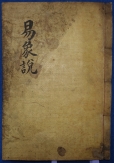 易象說